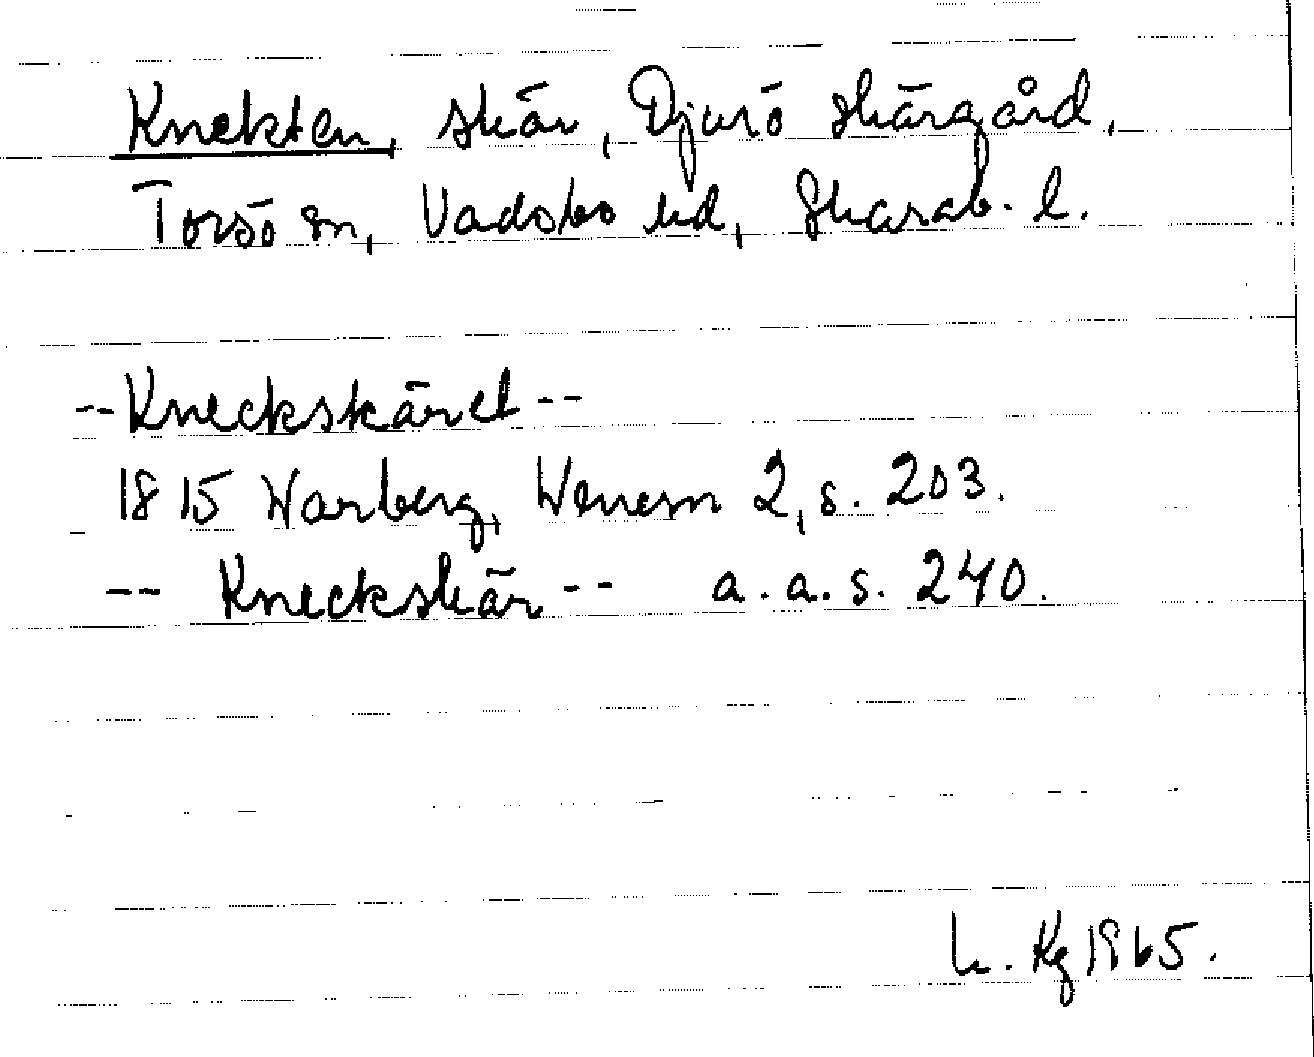 Knekten, skär, Djurö skärgård,
Torsö sn, Vadsbo hd, Skarab. l.
-- Kneckskäret --
1815 Warberg, Wenern 2, s. 203.
-- Kneckskär -- a. a. s. 240.
L. Kg 1965.